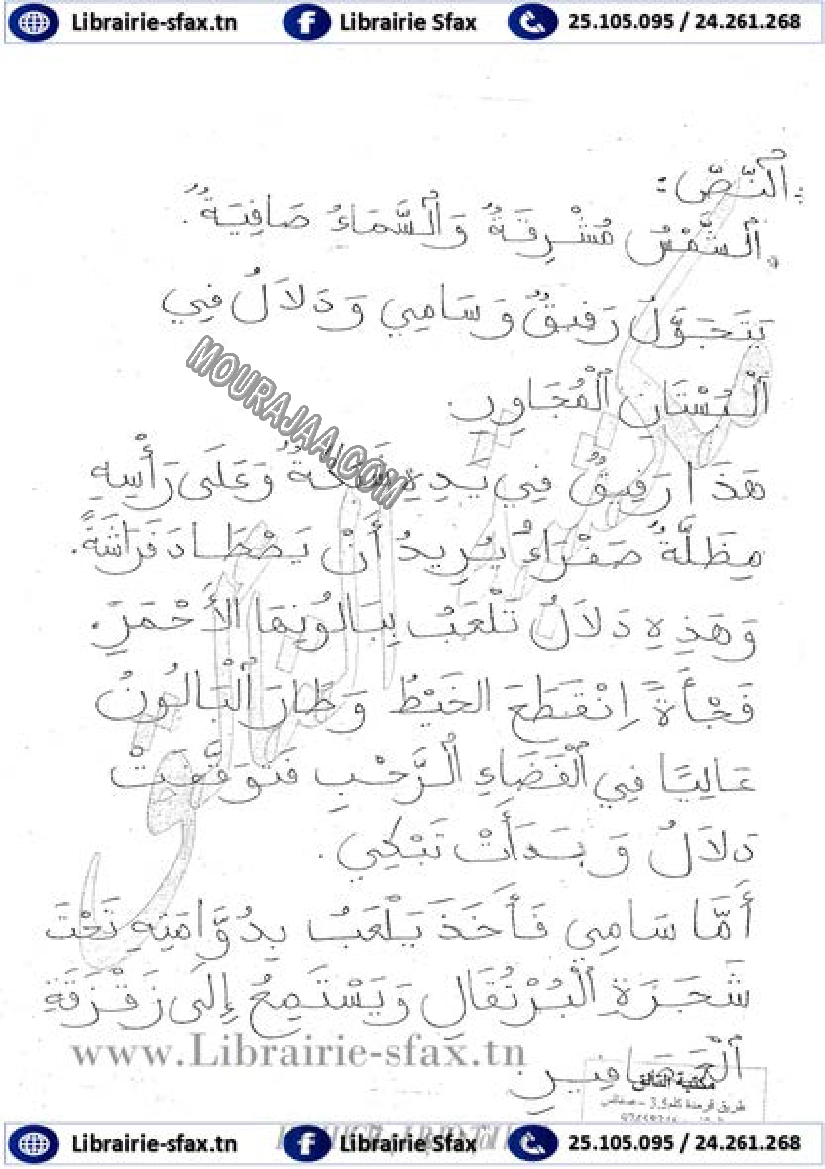 Librairie-sfax.tn Librairie Sfax 25.105.095 / 24.261.268
اَلنَّصُّ :
اَلشَّمْسُ مُشْرِقَةٌ وَالسَّمَاءُ صَافِيَةٌ.
يَتَجَوَّلُ رَفِيقٌ وَسَامِي وَدَلَالُ فِي
اَلْبُسْتَانِ الْمُجَاوِرِ.
هَذَا رَفِيقٌ فِي يَدِهِ شَبَكَةٌ وَعَلَى رَأْسِهِ
مِظَلَّةٌ صَفْرَاءُ يُرِيدُ أَنْ يَصْطَادَ فَرَاشَةً.
وَهَذِهِ دَلَالُ تَلْعَبُ بِبَالُونِهَا الأَحْمَرِ.
فَجْأَةً اِنْقَطَعَ الخَيْطُ وَطَارَ الْبَالُونُ
عَالِيًا فِي الْفَضَاءِ الرَّحْبِ فَتَوَقَّفَتْ
دَلَالُ وَبَدَأَتْ تَبْكِي.
أَمَّا سَامِي فَأَخَذَ يَلْعَبُ بِدُوَّامَتِهِ تَحْتَ
شَجَرَةِ الْبُرْتُقَالِ وَيَسْتَمِعُ إِلَى زَقْزَقَةِ
اَلْعَصَافِيرِ.
MOURAJAA.COM
www.Librairie-sfax.tn
مكتبة التألق
طريق قرمدة كلم 3.5 - صفاقس
Librairie-sfax.tn Librairie Sfax 25.105.095 / 24.261.268